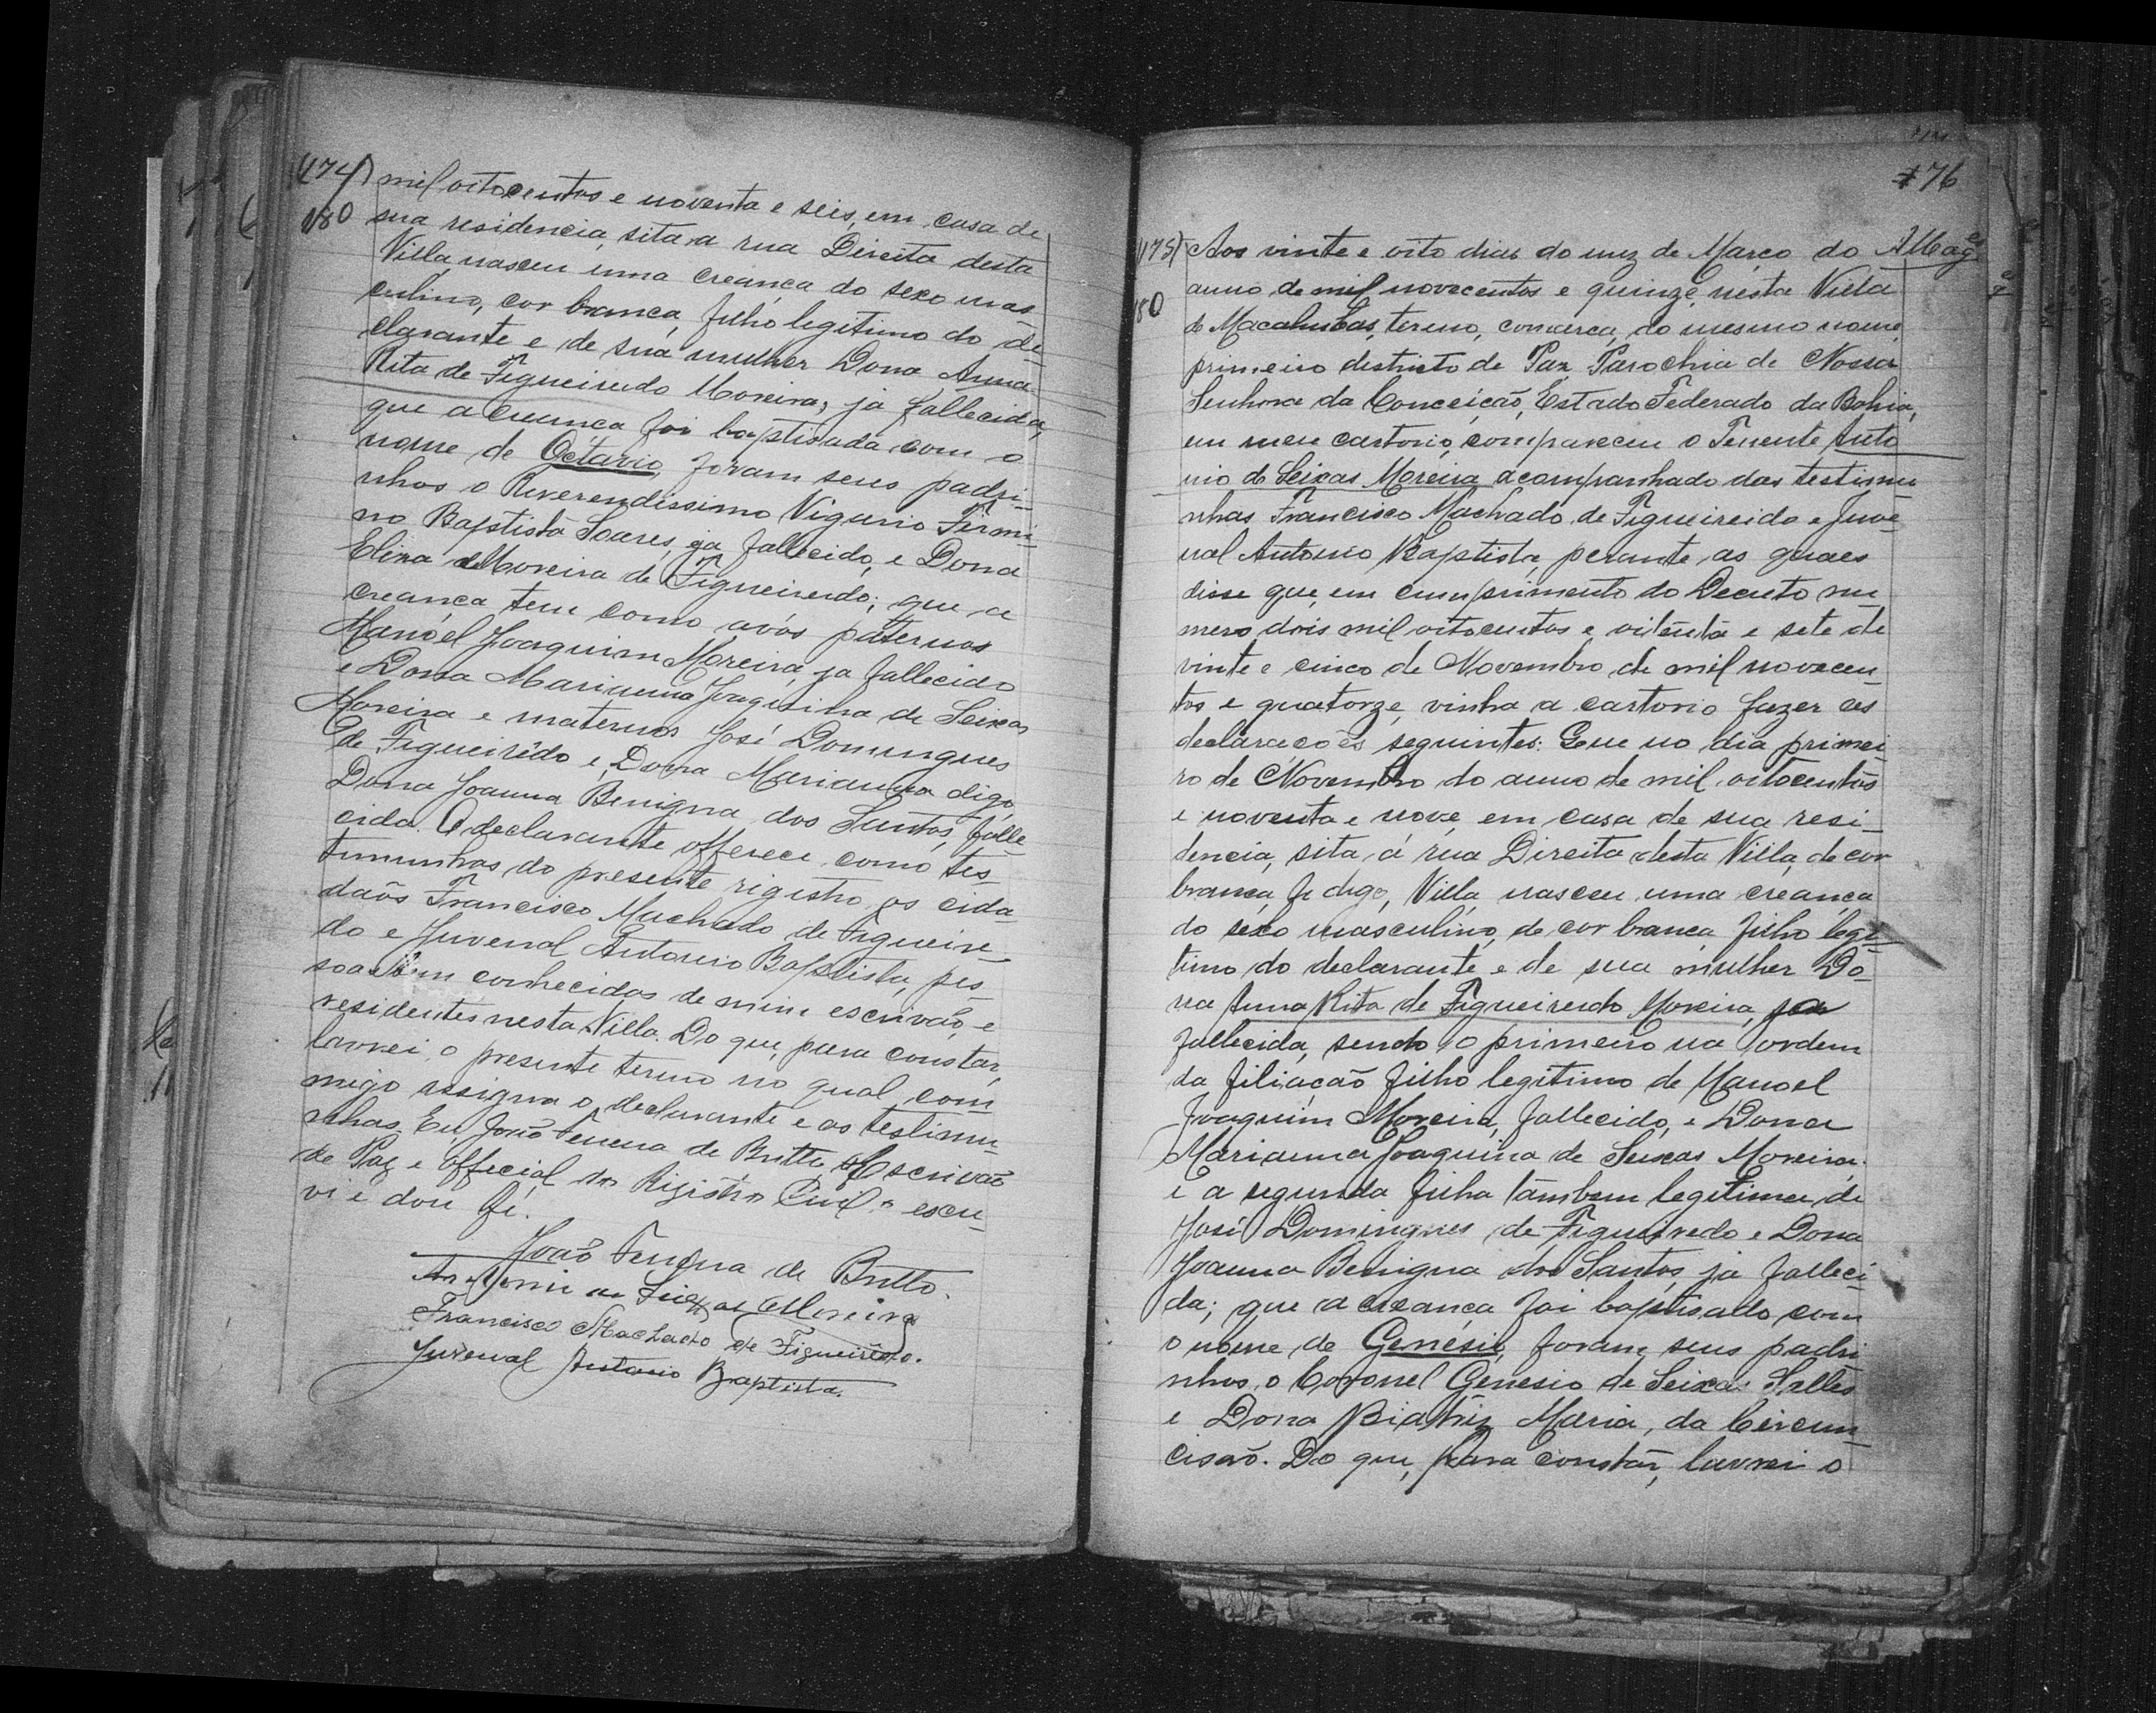 174)
180
mil oitocentos e noventa e seis, em casa de
sua residencia, sita a rua Direita desta
Villa nasceu uma creança do sexo mas
culino, cor branca, filho legitimo do de
clarante e de sua mulher Dona Anna
Rita de Figueiredo Moreira, já fallecida,
que a creança foi baptisada com o
nome de Octavio, foram seus padri-
nhos o Reverendissimo Vigario Firmi-
no Baptista Soares, já fallecido, e Dona
Eliza Moreira de Figueiredo; que a
creança tem como avós paternos
Manoel Joaquim Moreira, já fallecido
e Dona Marianna Joaquina de Seixas
Moreira e maternos José Domingues
de Figueirêdo e Dona Marianna digo,
Dona Joanna Benigna dos Santos, falle-
cida. O declarante offerece como tes-
timunhas do presente rigistro os cida-
daõs Francisco Machado de Figueire-
do e Juvenal Antonio Baptista, pes-
soas bem conhecidas de mim escrivão, e
residentes nesta Villa. Do que, para constar,
lavrei o presente termo no qual com
migo assigna o declarante e as testimu
nhas. Eu, João Ferreira de Britto, Escrivão
de Paz e official do Rigistro Civil o escre-
vi e dou fé.
João Ferreira de Britto.
Antonio de Seixas Moreira
Francisco Machado de Figueirêdo.
Juvenal Antonio Baptista.
176
175)
180
Aos vinte e oito dias do mez de Março do
anno de mil novecentos e quinze, nesta Villa
de Macahubas, termo, comarca, do mesmo nome,
primeiro districto de Paz, Parochia de Nossa
Senhora da Conceição, Estado Federado da Bahia,
em meu cartorio, compareceu o Tenente Anto
nio de Seixas Moreira acompanhado das testimu
nhas Francisco Machado de Figueireido e Juve-
nal Antonio Baptista, perante as quaes
disse que, em cumprimento do Decreto nu
mero dois mil oitocentos e oitenta e sete de
vinte e cinco de Novembro de mil novecen-
tos e quatorze, vinha a cartorio fazer as
declarações seguintes: Que no dia primei-
ro de Novembro do anno de mil oitocentos
e noventa e nove, em casa de sua resi-
dencia, sita á rua Direita desta Villa, de cor
branca, fi digo, Villa, nasceu uma creança
do sexo masculino, de cor branca, filho legi-
timo do declarante e de sua mulher Do-
na Anna Rita de Figueiredo Moreira, ja
fallecida, sendo o primeiro na ordem
da filiação filho legitimo de Manoel
Joaquim Moreira, fallecido, e Dona
Marianna Joaquina de Seixas Moreira,
e a segunda filha tâmbem legitima de
José Domingues de Figueiredo e Dona
Joanna Benigna dos Santos, já falleci-
da; que a creança foi baptisado com
o nome de Genésio, foram seus padri
nhos, o Coronel Genesio de Seixas Salles
e Dona Biatriz Maria, da Circum-
cisão. Do que, para constar, lavrei o